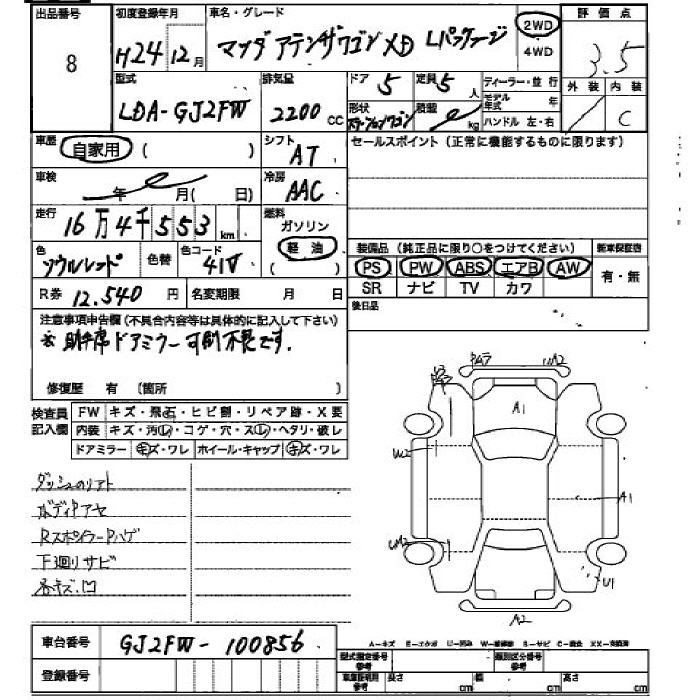 出品番号 8
初度登録年月 H24 12月
車名・グレード マツダ アテンザワゴン XD Lパッケージ
2WD
4WD
評価点 3.5
外装 内装 C
型式 LDA-GJ2FW
排気量 2200 CC
ドア 5
定員 5 人
形状 ステーションワゴン
積載 kg
ディーラー・並行
モデル年式 年
ハンドル 左・右
車歴 自家用 ( )
シフト AT
セールスポイント(正常に機能するものに限ります)
車検 年 月( 日)
冷房 AAC
走行 16万4千553 km
燃料 ガソリン
軽油
( )
色 ソウルレッド
色替
色コード 41V
装備品(純正品に限り○をつけてください)
新車保証書
PS PW ABS エアB AW
SR ナビ TV カワ
有・無
R券 12,540 円
名変期限 月 日
後日品
注意事項申告欄(不具合内容等は具体的に記入して下さい)
※助手席ドアミラー可倒不良です.
修復歴 有 (箇所 )
検査員記入欄
FW キズ・飛石・ヒビ割・リペア跡・X要
内装 キズ・汚レ・コゲ・穴・スレ・ヘタリ・破レ
ドアミラー キズ・ワレ ホイール・キャップ キズ・ワレ
ダッシュのリアト
ボディPアセ
RスポイラーPハゲ
下廻りサビ
各キズ.凹
A2
A1
A1
U1
A2
車台番号 GJ2FW-100856
登録番号
A-キズ E-エクボ U-凹み W-補修跡 S-サビ C-腐食 XX-交換済
型式指定番号 参考
類別区分番号 参考
車庫証明用 参考
長さ cm
幅 cm
高さ cm